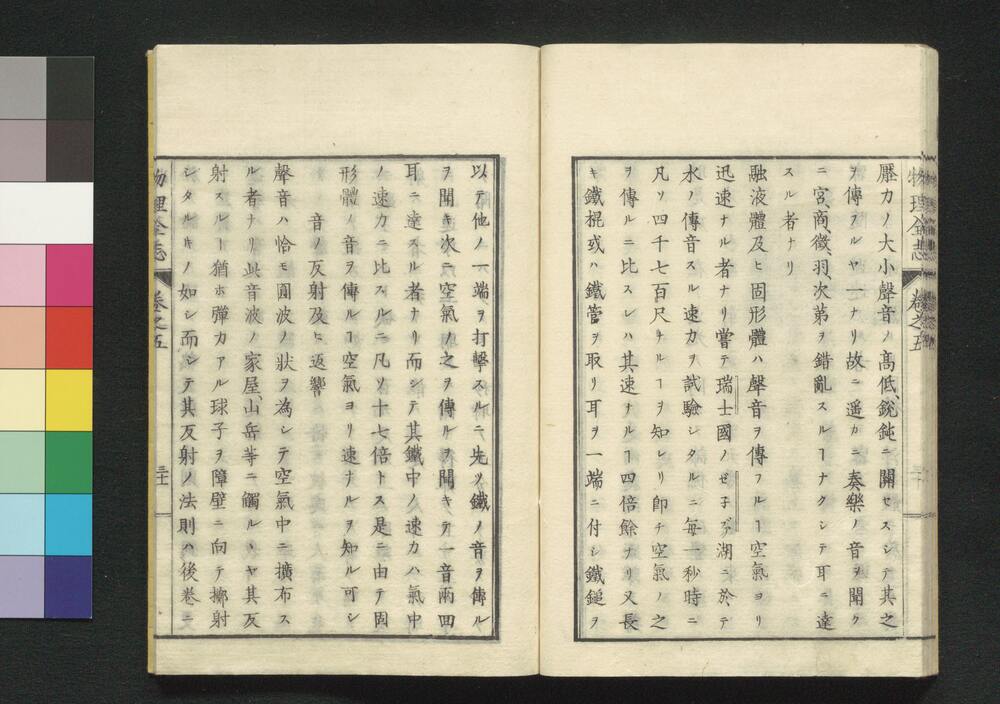 壓力ノ大小聲音ノ高低、銳鈍ニ關セスシテ其之
ヲ傳フルヤ一ナリ故ニ遥カニ奏樂ノ音ヲ聞ク
ニ宮、商、徵、羽、次第ヲ錯亂スルヿナクシテ耳ニ達
スル者ナリ
融液體及ヒ固形體ハ聲音ヲ傳フルヿ空氣ヨリ
迅速ナル者ナリ嘗テ瑞士國ノゼ子ヷ湖ニ於テ
水ノ傳音スル速力ヲ試驗シタルニ每一秒時ニ
凡ソ四千七百尺ナルヿヲ知レリ卽チ空氣ノ之
ヲ傳ルニ比スレハ其速ナルヿ四倍餘ナリ又長
キ鐵棍或ハ鐵管ヲ取リ耳ヲ一端ニ付シ鐵鎚ヲ
物理全志
卷之五
以テ他ノ一端ヲ打擊スルニ先ツ鐵ノ音ヲ傳ル
ヲ聞キ次ニ空氣ノ之ヲ傳ルヲ聞キテ一音兩回
耳ニ達スル者ナリ而シテ其鐵中ノ速力ハ氣中
ノ速力ニ比スルニ凡ソ十七倍トス是ニ由テ固
形體ノ音ヲ傳ルヿ空氣ヨリ速ナルヲ知ル可シ
音ノ反射及ヒ返響
聲音ハ恰モ圓波ノ狀ヲ為シテ空氣中ニ擴布ス
ル者ナリ此音波ノ家屋、山岳等ニ觸ルヽヤ其反
射スルヿ猶ホ彈力アル球子ヲ障壁ニ向テ擲射
シタルキノ如シ而シテ其反射ノ法則ハ後卷ニ
物理全志
卷之五
三十